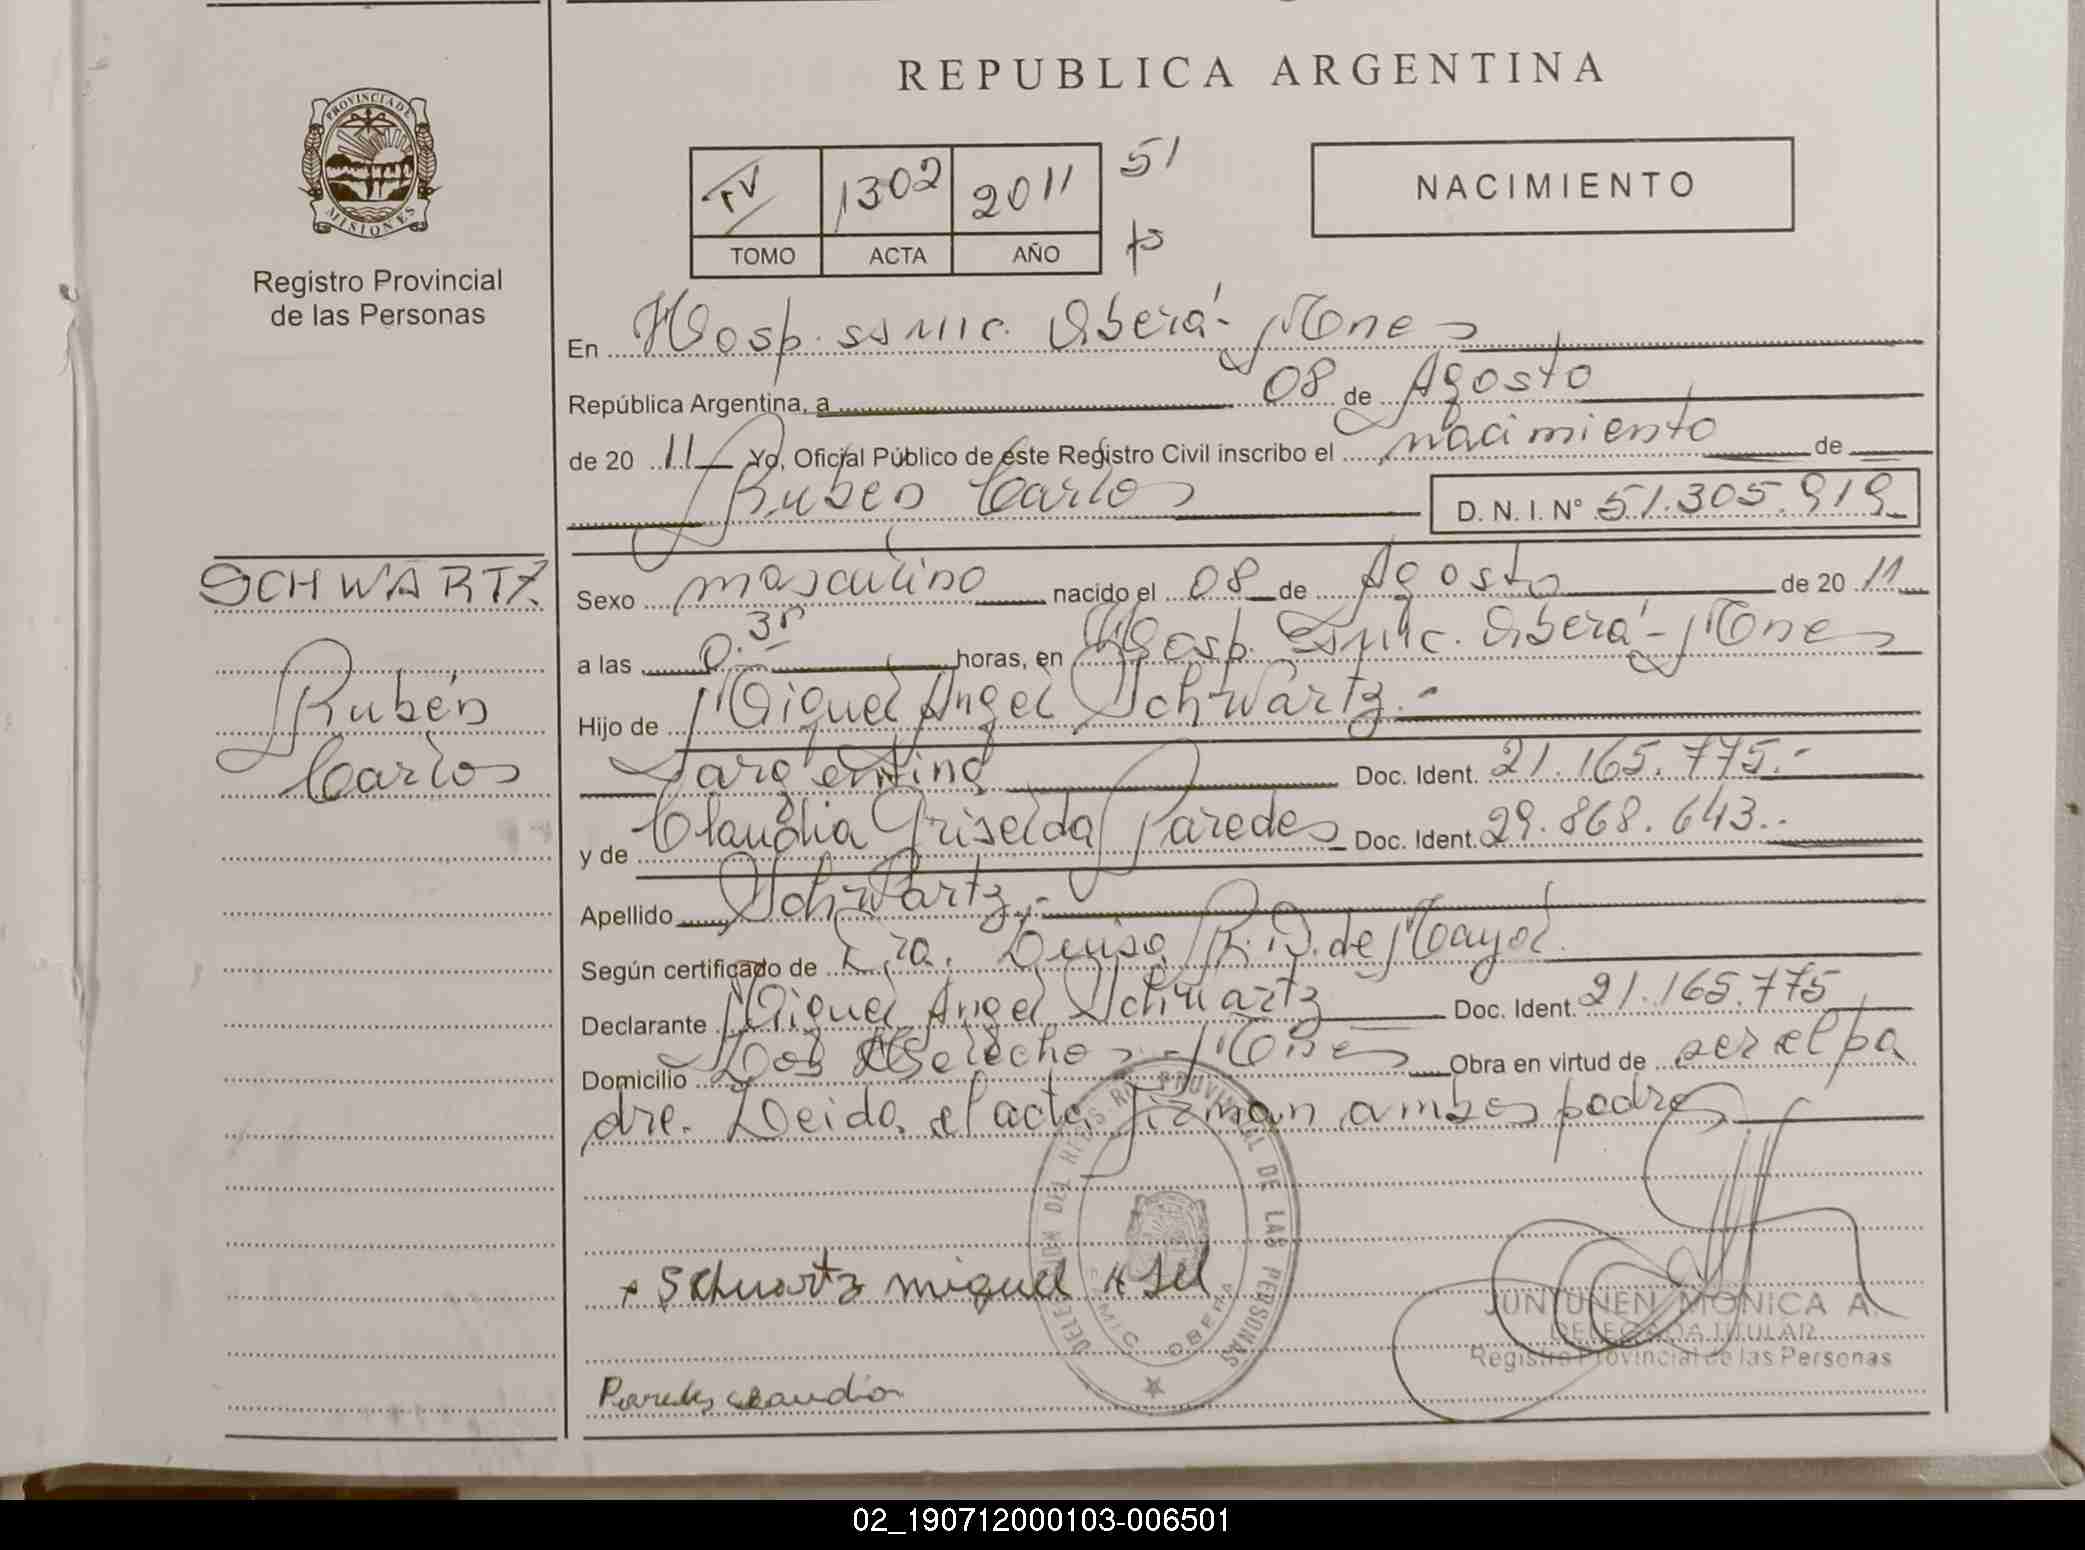 REPUBLICA ARGENTINA
PROVINCIA DE
MISIONES
Registro Provincial
de las Personas
IV 1302 2011 51
TOMO ACTA AÑO
NACIMIENTO
En Hosp. SSMIC. Oberá - Mnes
República Argentina, a 08 de Agosto
de 20 11 Yo, Oficial Público de este Registro Civil inscribo el nacimiento de
Rubén Carlos D. N. I. Nº 51.305.919
SCHWARTZ
Rubén
Carlos
Sexo masculino nacido el 08 de Agosto de 20 11
a las 0.30 horas, en Hosp. SSMIC. Oberá - Mnes
Hijo de Miguel Angel Schwartz.-
argentino Doc. Ident. 21.165.775.-
y de Claudia Griselda Paredes Doc. Ident. 29.868.643.-
Apellido Schwartz.-
Según certificado de Dra. Luisa R. D. de Mayol.
Declarante Miguel Angel Schwartz Doc. Ident. 21.165.775
Domicilio Dos Mnes Obra en virtud de ser el pa
dre. Leida el acta firman ambos padres
Schwartz miguel
Paredes claudia
REGISTRO PROVINCIAL DE LAS PERSONAS
OBERA
JUNTUNEN MONICA A.
DELEGADA TITULAR
Registro Provincial de las Personas
02_190712000103-006501